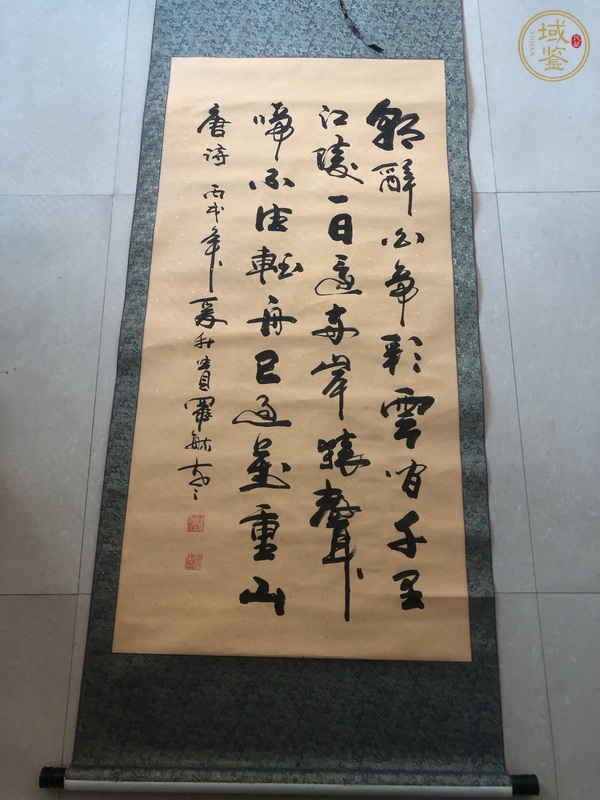 朝辭白帝彩雲间千里
江陵一日還两岸猿聲
啼不住輕舟已過萬重山
唐诗 丙戌年夏 貴 羅毓
域鉴
YUJIAN